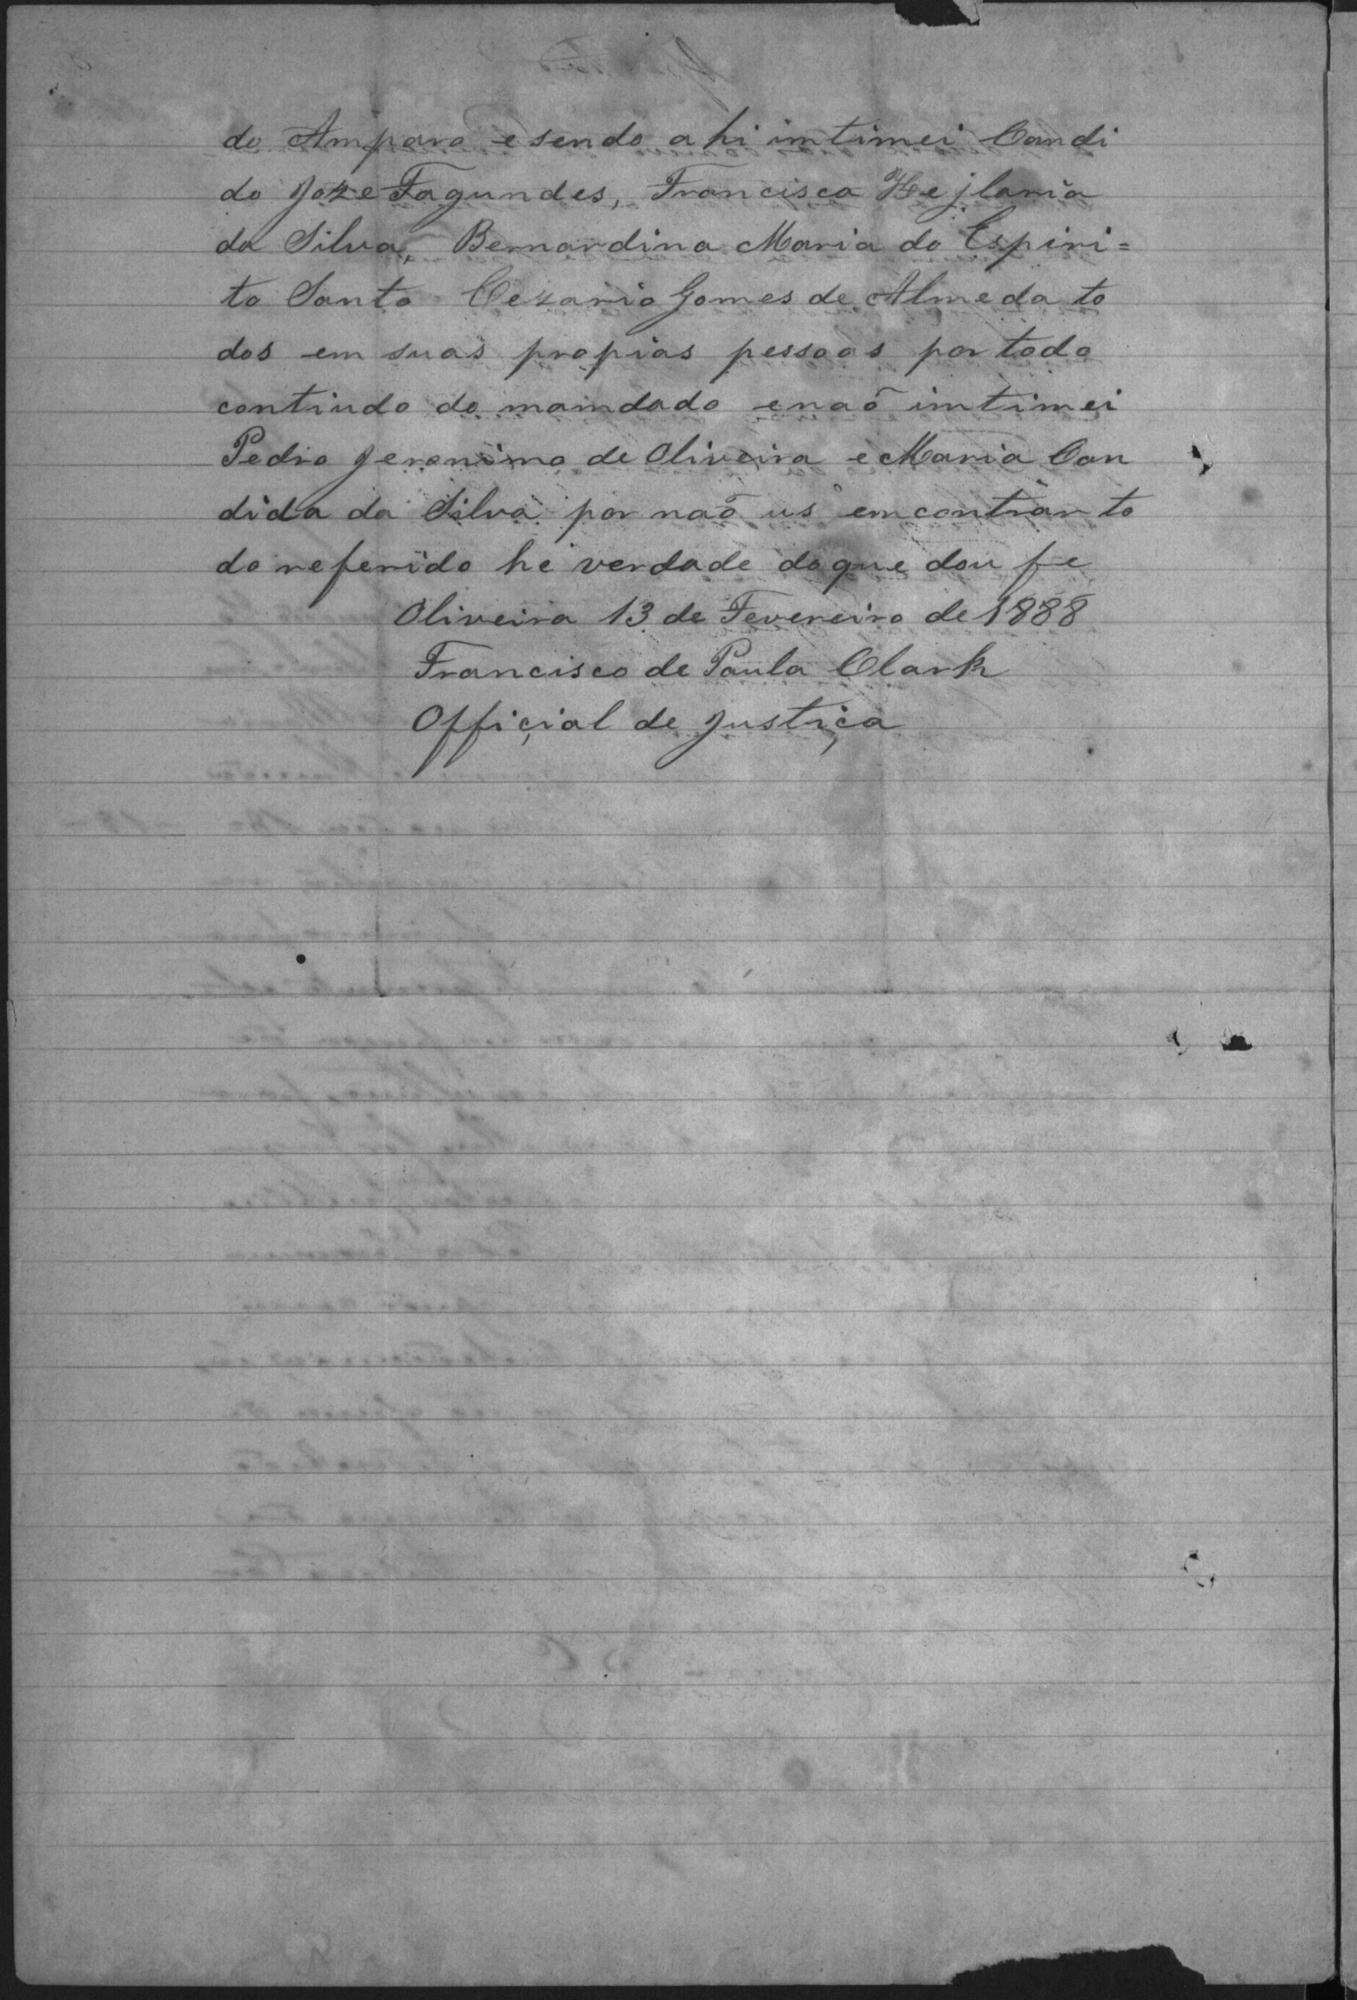 do Amparo e sendo a hi imtimei Candi
do Joze Fagundes, Francisca Hejlaria
da Silva, Bernardina Maria do Espiri=
to Santo Cezario Gomes de Almeda to
dos em suas propias pessoas por todo
contiudo do mamdado enaõ imtimei
Pedro Jeronimo de Oliveira e Maria Can
dida da Silva por naõ us emcontrar to
do referido he verdade do que dou fe
Oliveira 13 de Fevereiro de 1888
Francisco de Paula Clark
Offiçial de Justiça